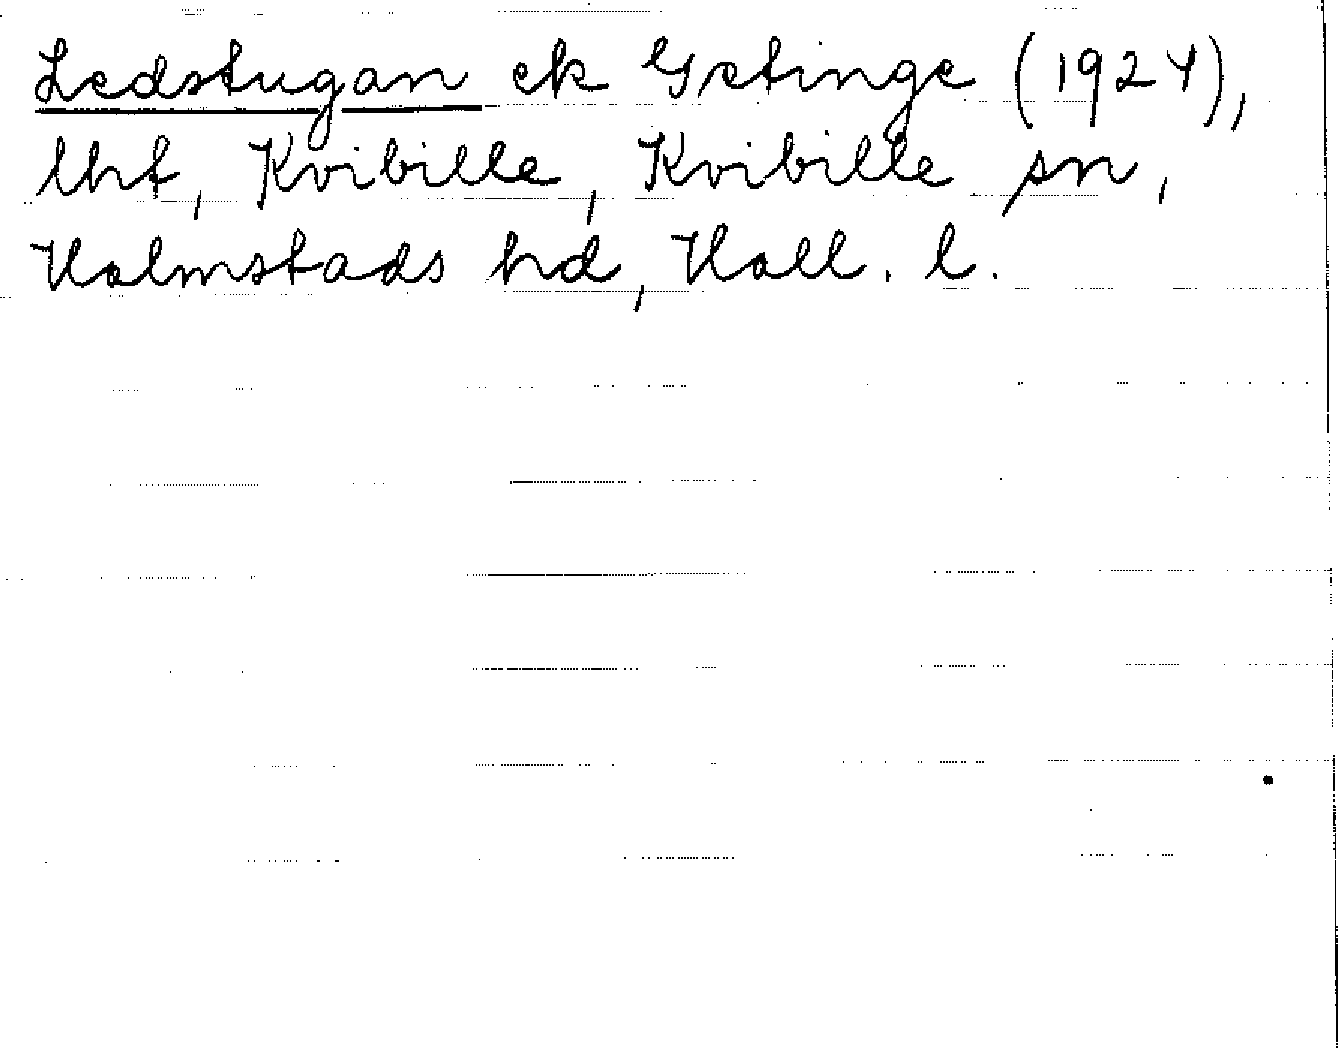 Ledstugan ek Getinge (1924),
lht, Kvibille, Kvibille sn,
Halmstads hd, Hall. l.